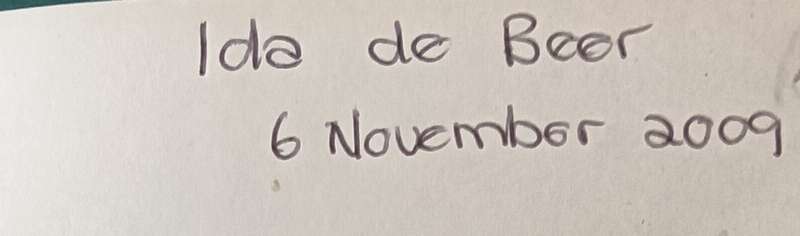 Ida de Beer
6 November 2009